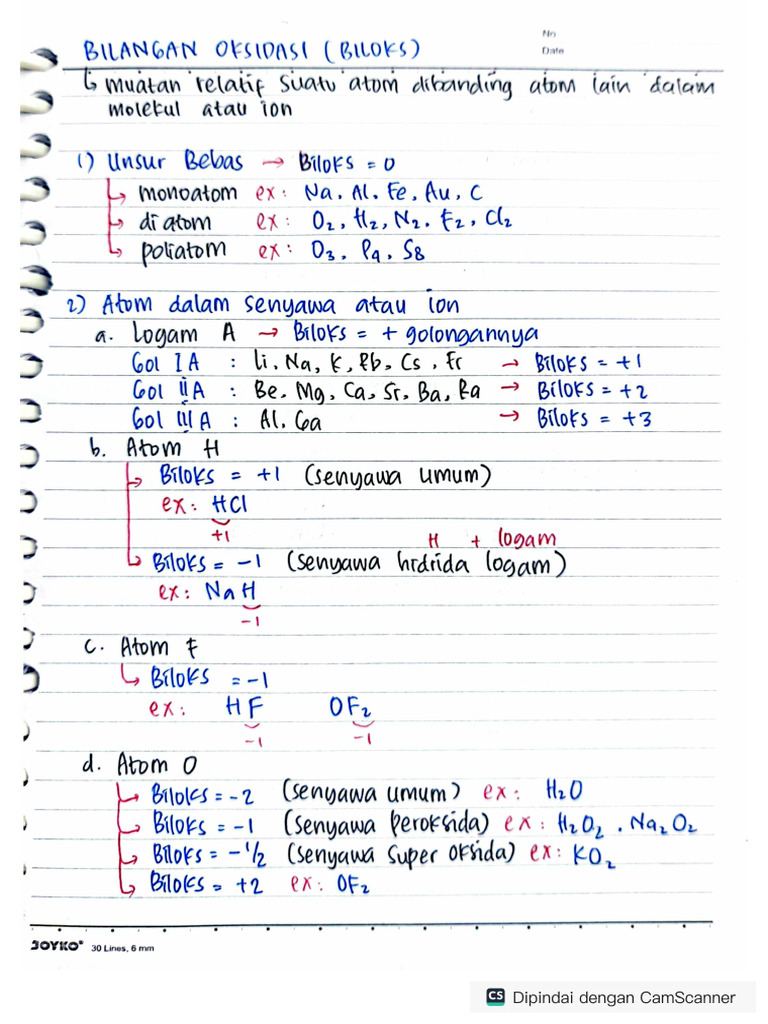 No
Date
BILANGAN OKSIDASI (BILOKS)
↳ muatan relatif suatu atom dibanding atom lain dalam
molekul atau ion
1) Unsur Bebas → Biloks = 0
↳ monoatom ex: Na, Al, Fe, Au, C
↳ diatom ex: O₂, H₂, N₂, F₂, Cl₂
↳ poliatom ex: O₃, P₄, S₈
2) Atom dalam senyawa atau ion
a. Logam A → Biloks = + golongannya
Gol I A : Li, Na, K, Rb, Cs, Fr → Biloks = +1
Gol II A : Be, Mg, Ca, Sr, Ba, Ra → Biloks = +2
Gol III A : Al, Ga → Biloks = +3
b. Atom H
↳ Biloks = +1 (senyawa umum)
ex: HCl
+1
H + logam
↳ Biloks = -1 (senyawa hidrida logam)
ex: NaH
-1
c. Atom F
↳ Biloks = -1
ex: HF OF₂
-1 -1
d. Atom O
↳ Biloks = -2 (senyawa umum) ex: H₂O
↳ Biloks = -1 (senyawa peroksida) ex: H₂O₂, Na₂O₂
↳ Biloks = -1/2 (senyawa super oksida) ex: KO₂
↳ Biloks = +2 ex: OF₂
JOYKO® 30 Lines, 6 mm
CS Dipindai dengan CamScanner